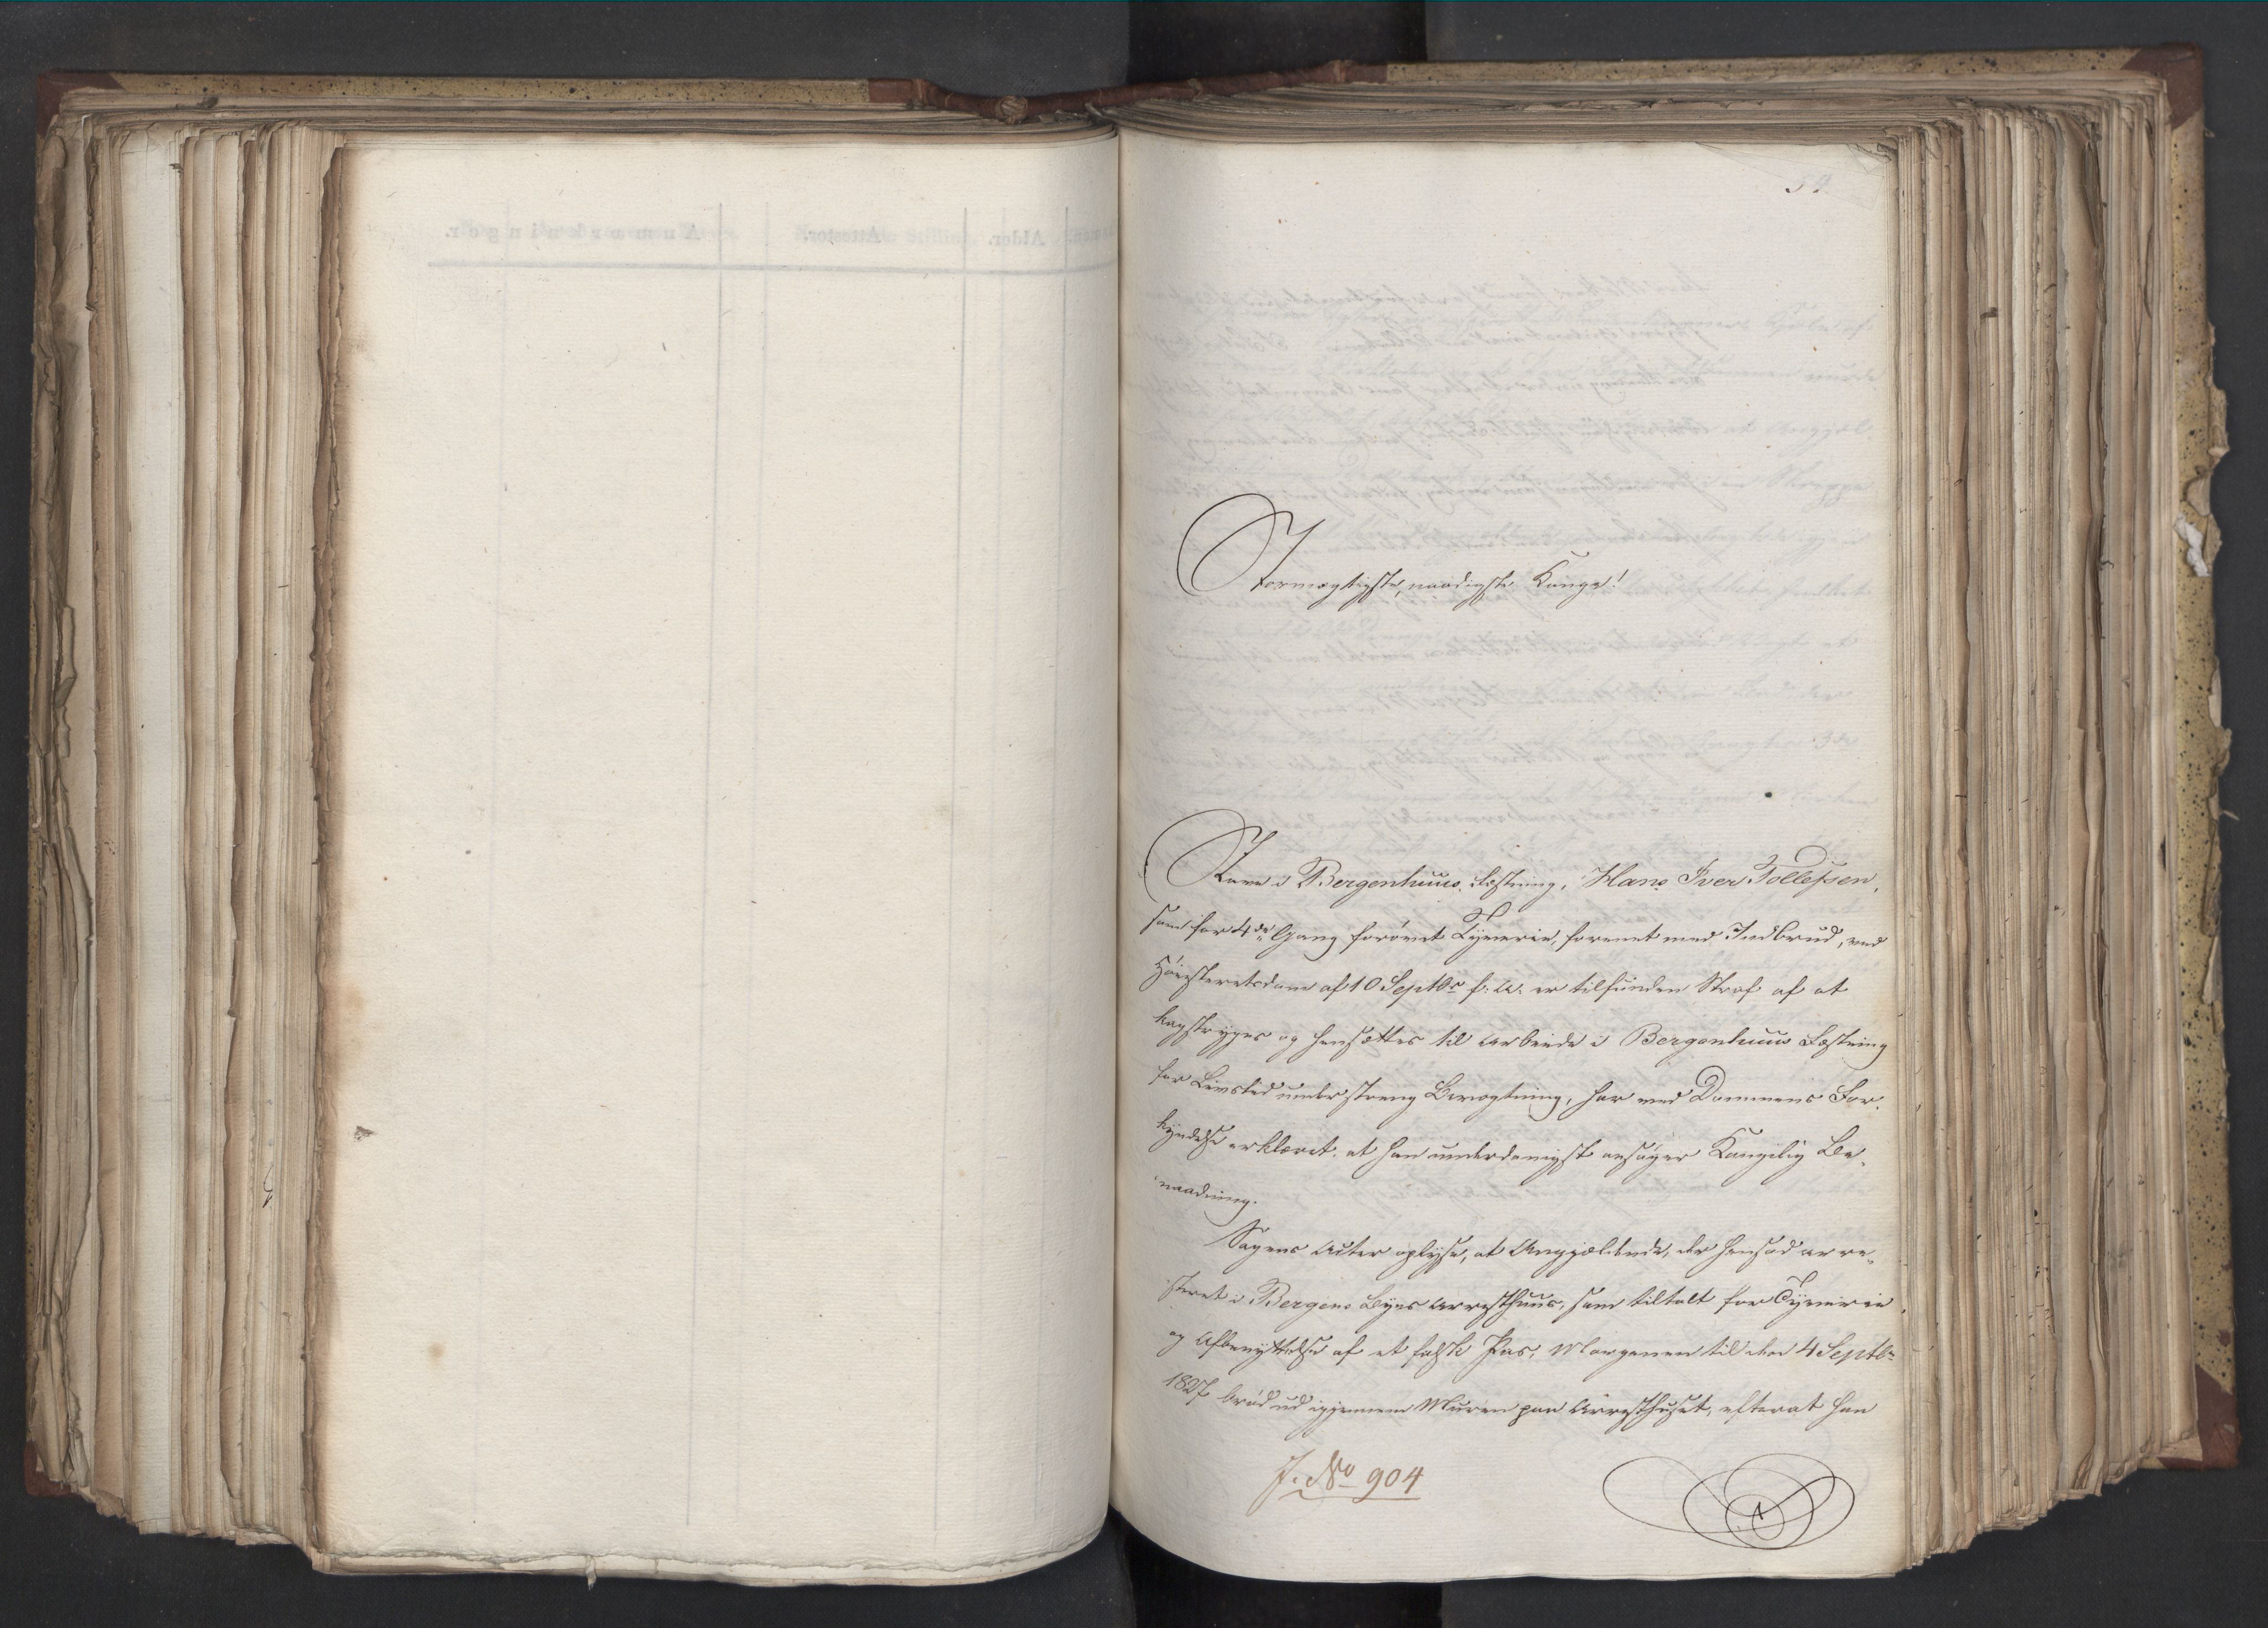 54.
Stormægtigste, naadigste Konge!
Slave i Bergenhuus Fæstning, Hans Iver Tollefsen,
som for 4de Gang forøvet Tyverie, forenet med Indbrud, ved
Høiesteretsdom af 10 Septbr f: A: er tilfunden Straf af at
kagstryges og hensættes til Arbeide i Bergenhuus Fæstning
for Livstid under streng Bevogtning, har ved Dommens For-
kyndelse erklæret, at han underdanigst ansøger Kongelig Be-
naadning.
Sagens Acter oplyse, at Angjældende, der hensad arre-
steret i Bergens Byes Arresthuus, som tiltalt for Tyverie
og Afbenyttelse af et falsk Pas, Morgenen til den 4 Septbr
1827 brød ud igjennem Muren paa Arresthuset, efterat han
J. No 904